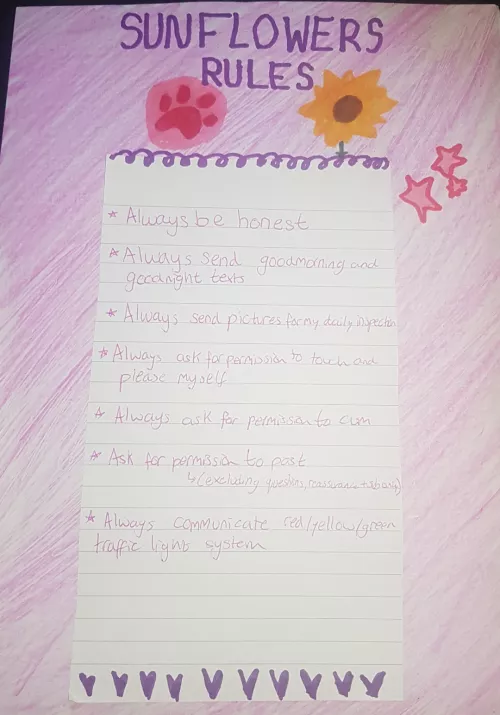 SUNFLOWERS
RULES
Always be honest
Always send goodmorning and
goodnight texts
Always send pictures for my daily inspection
Always ask for permission to touch and
please myself
Always ask for permission to cum
Ask for permission to post
(excluding questions, reassurance +
Always communicate red/yellow/green
traffic light system